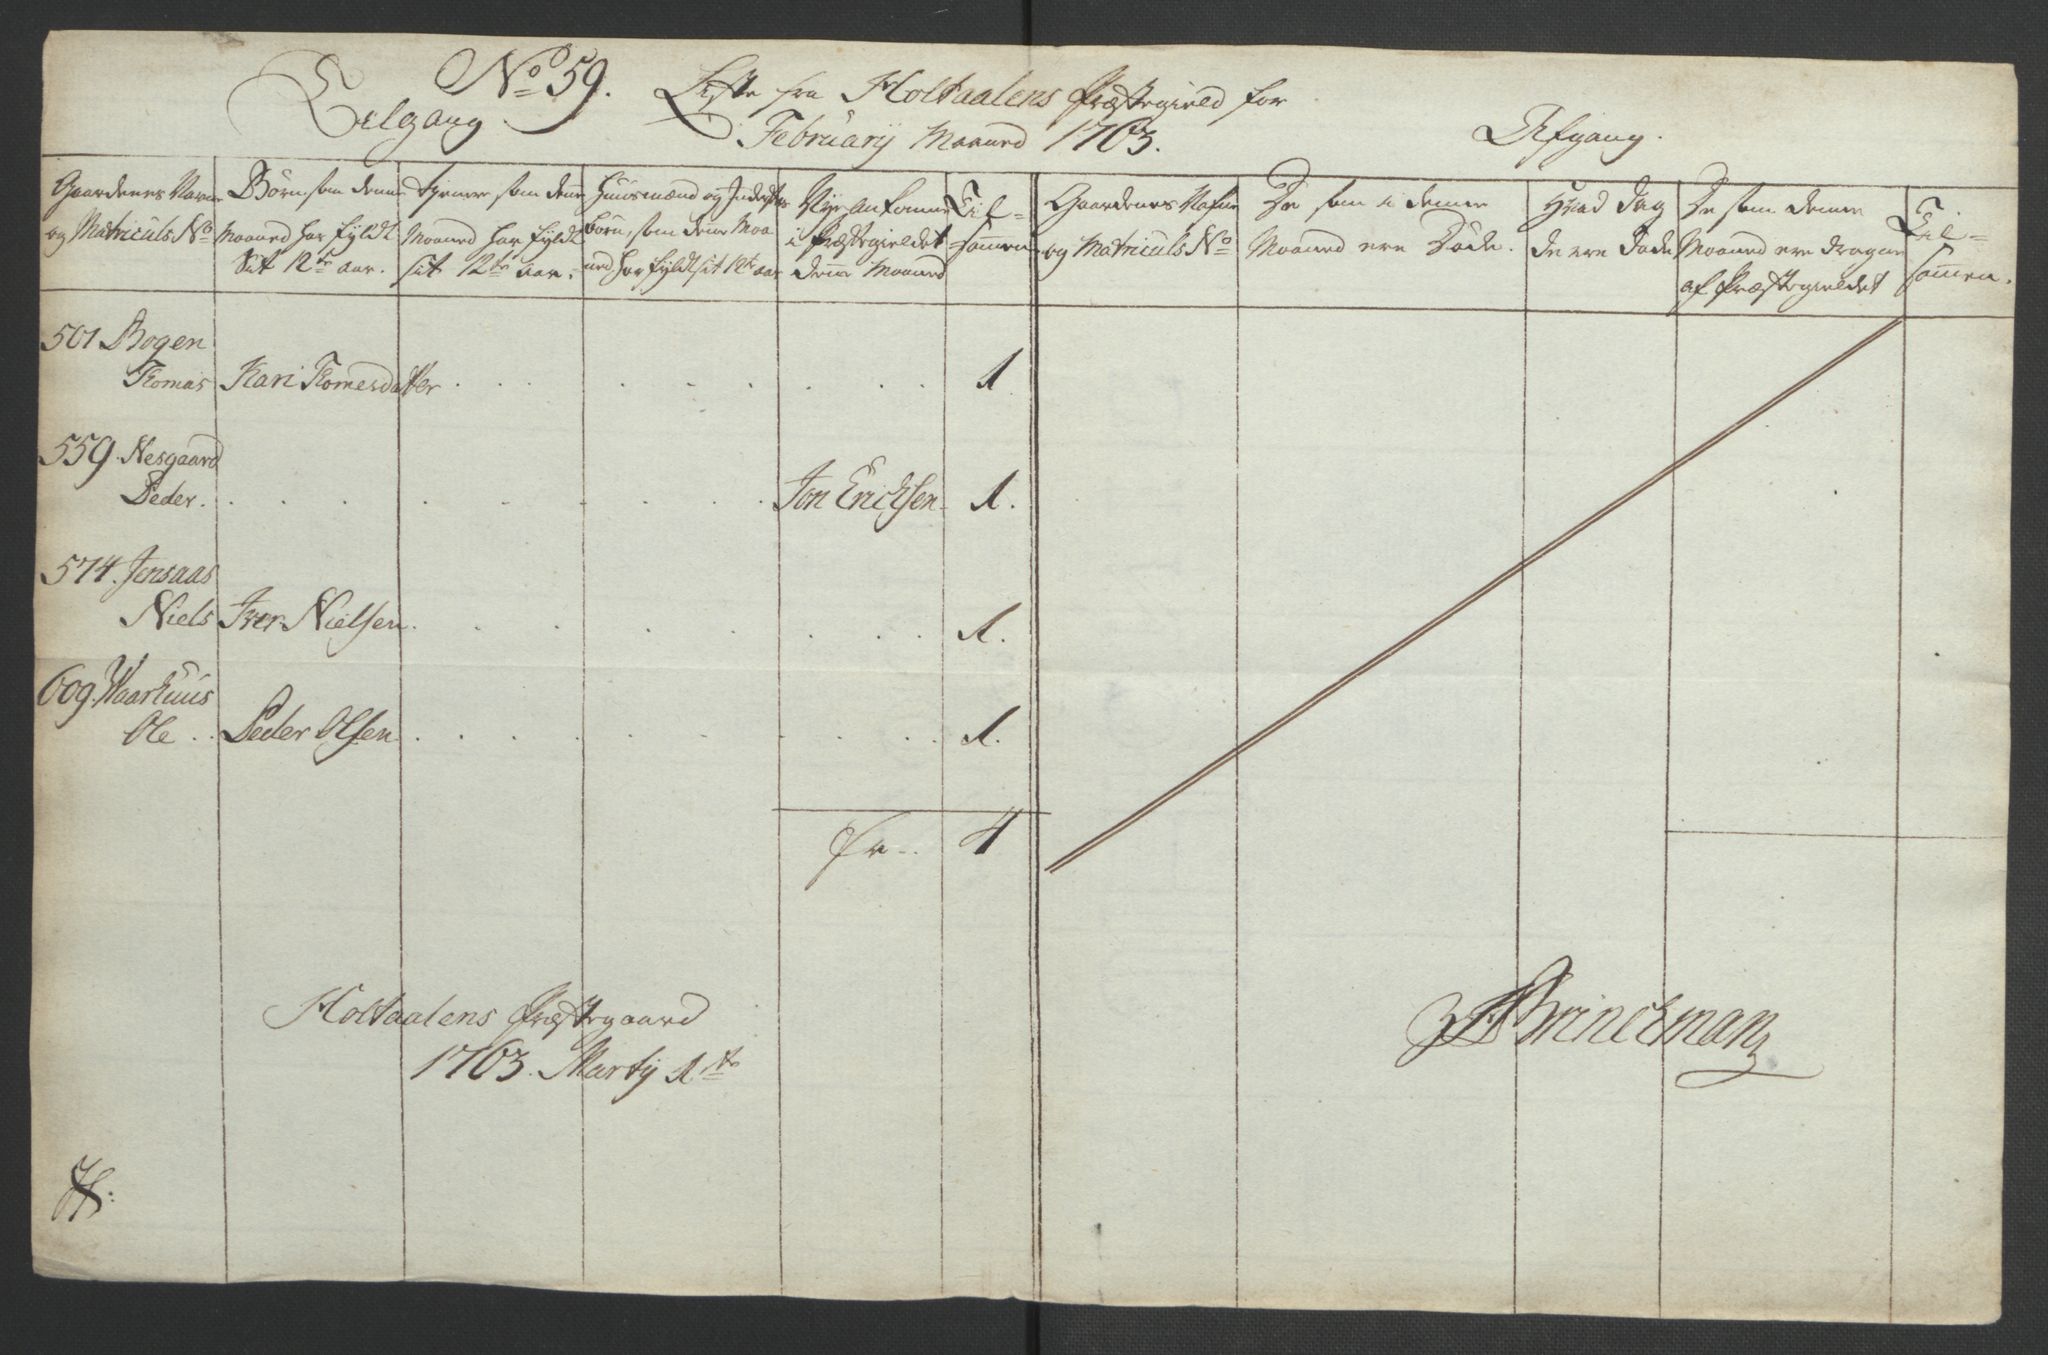 No 59.
Liste fra Holtaalens Præstegield for
Tilgang
Februarij Maaned 1763.
Afgang.
Gaardenes Navne
og Matriculs No
Børn, som denne
Maaned har fyldt
Sit 12te aar.
Tjenere som denne
Maaned har fyldt
sit 12te aar.
Huusmænd og Inderstes
børn, som denne Maa
ned har fyldt sit 12te aar
Nye Ankomne
i Præstegieldet
denne Maaned
Til-
sammen
Gaardenes Nafne
og Matriculs No
De som i denne
Maaned ere Døde.
Hvad Dag
de ere Døde
De som denne
Maaned ere dragne
af Præstegieldet
Til-
sammen.
501 Bogen
Thomas Kari Thomesdatter 1
559. Nesgaard
Peder. Jon Ericksen 1.
574. Jensaas
Niels Iver Nielsen. 1.
609. Waarhuus
Ole Peder Olsen 1.
4
Holtaalens Præstegaard
1763. Martij 1te
Brinckman